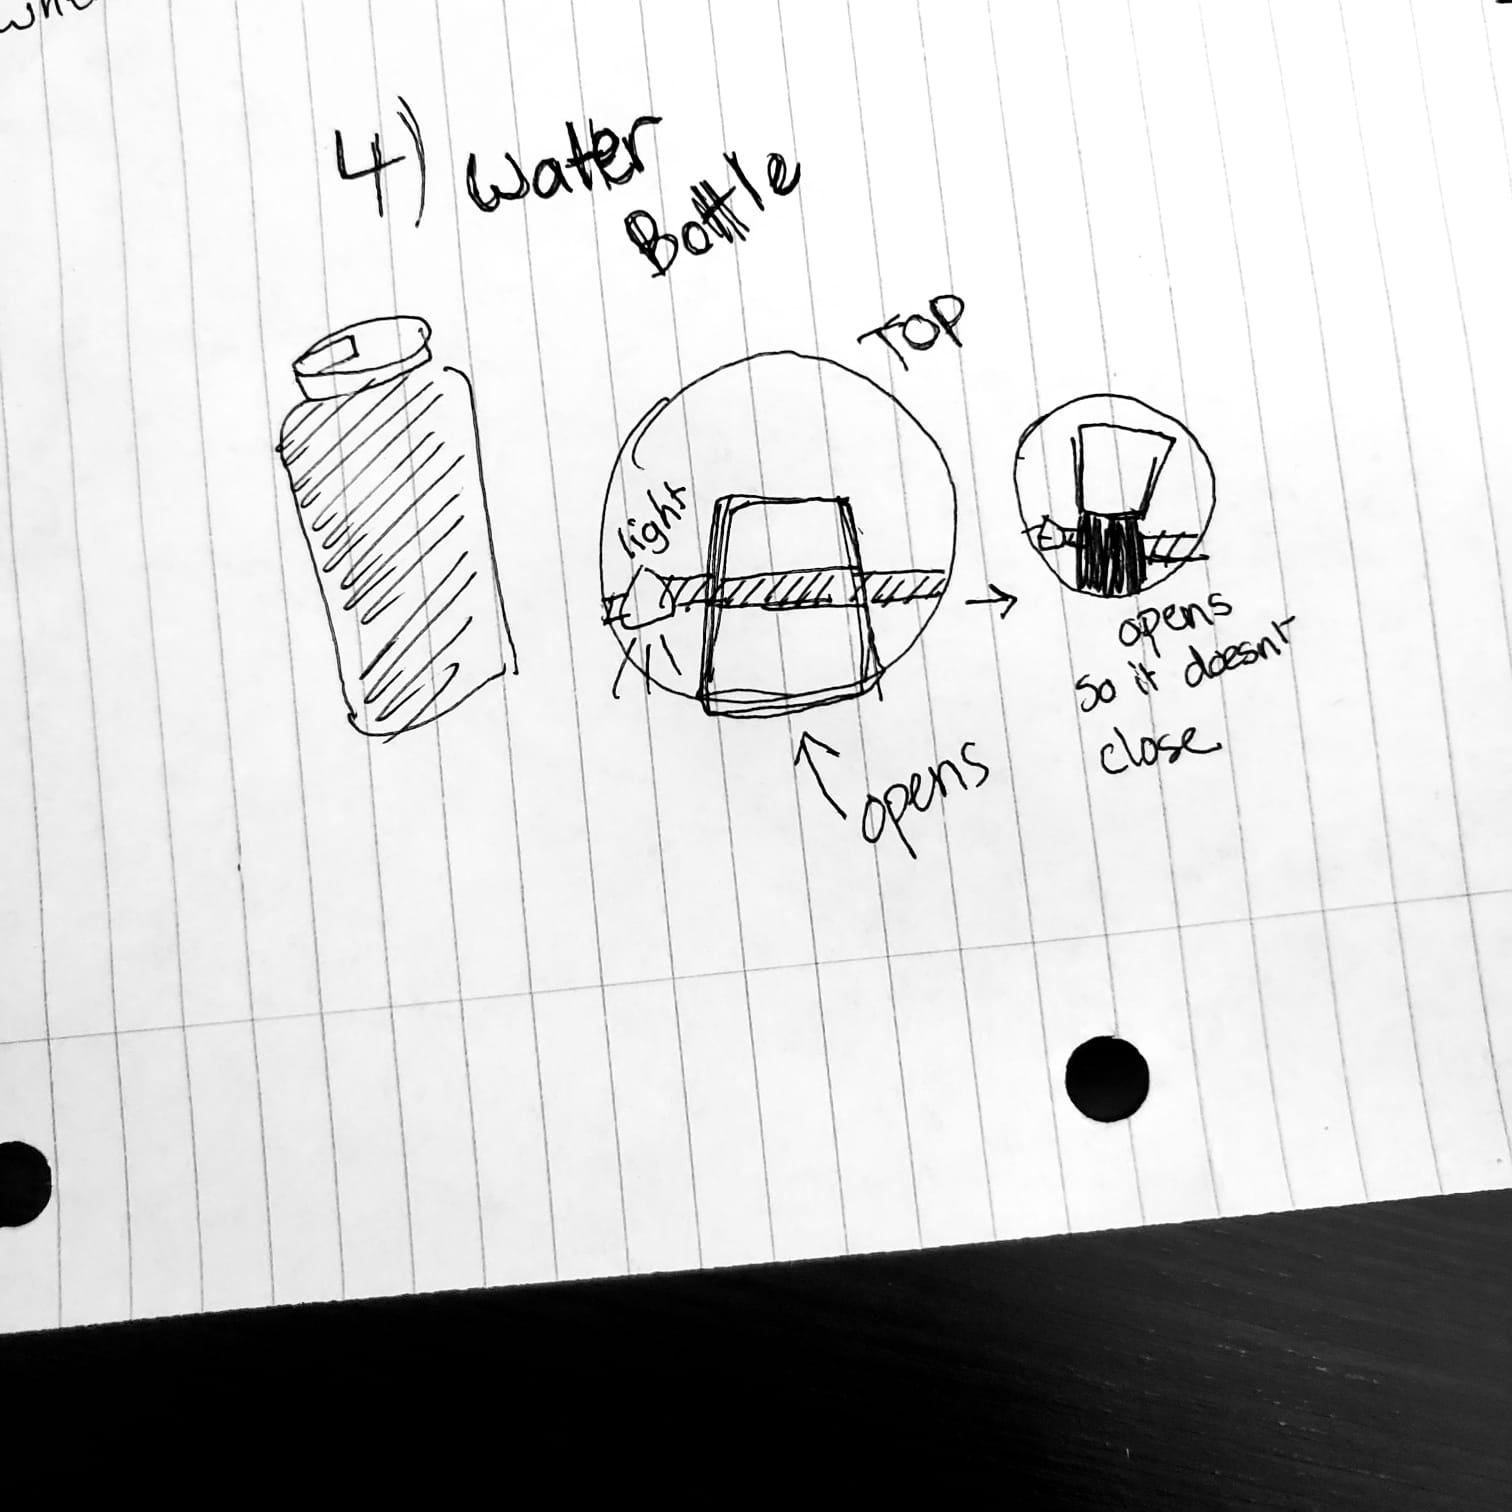 4) Water
Bottle
TOP
light
opens
opens
so it doesn't
close